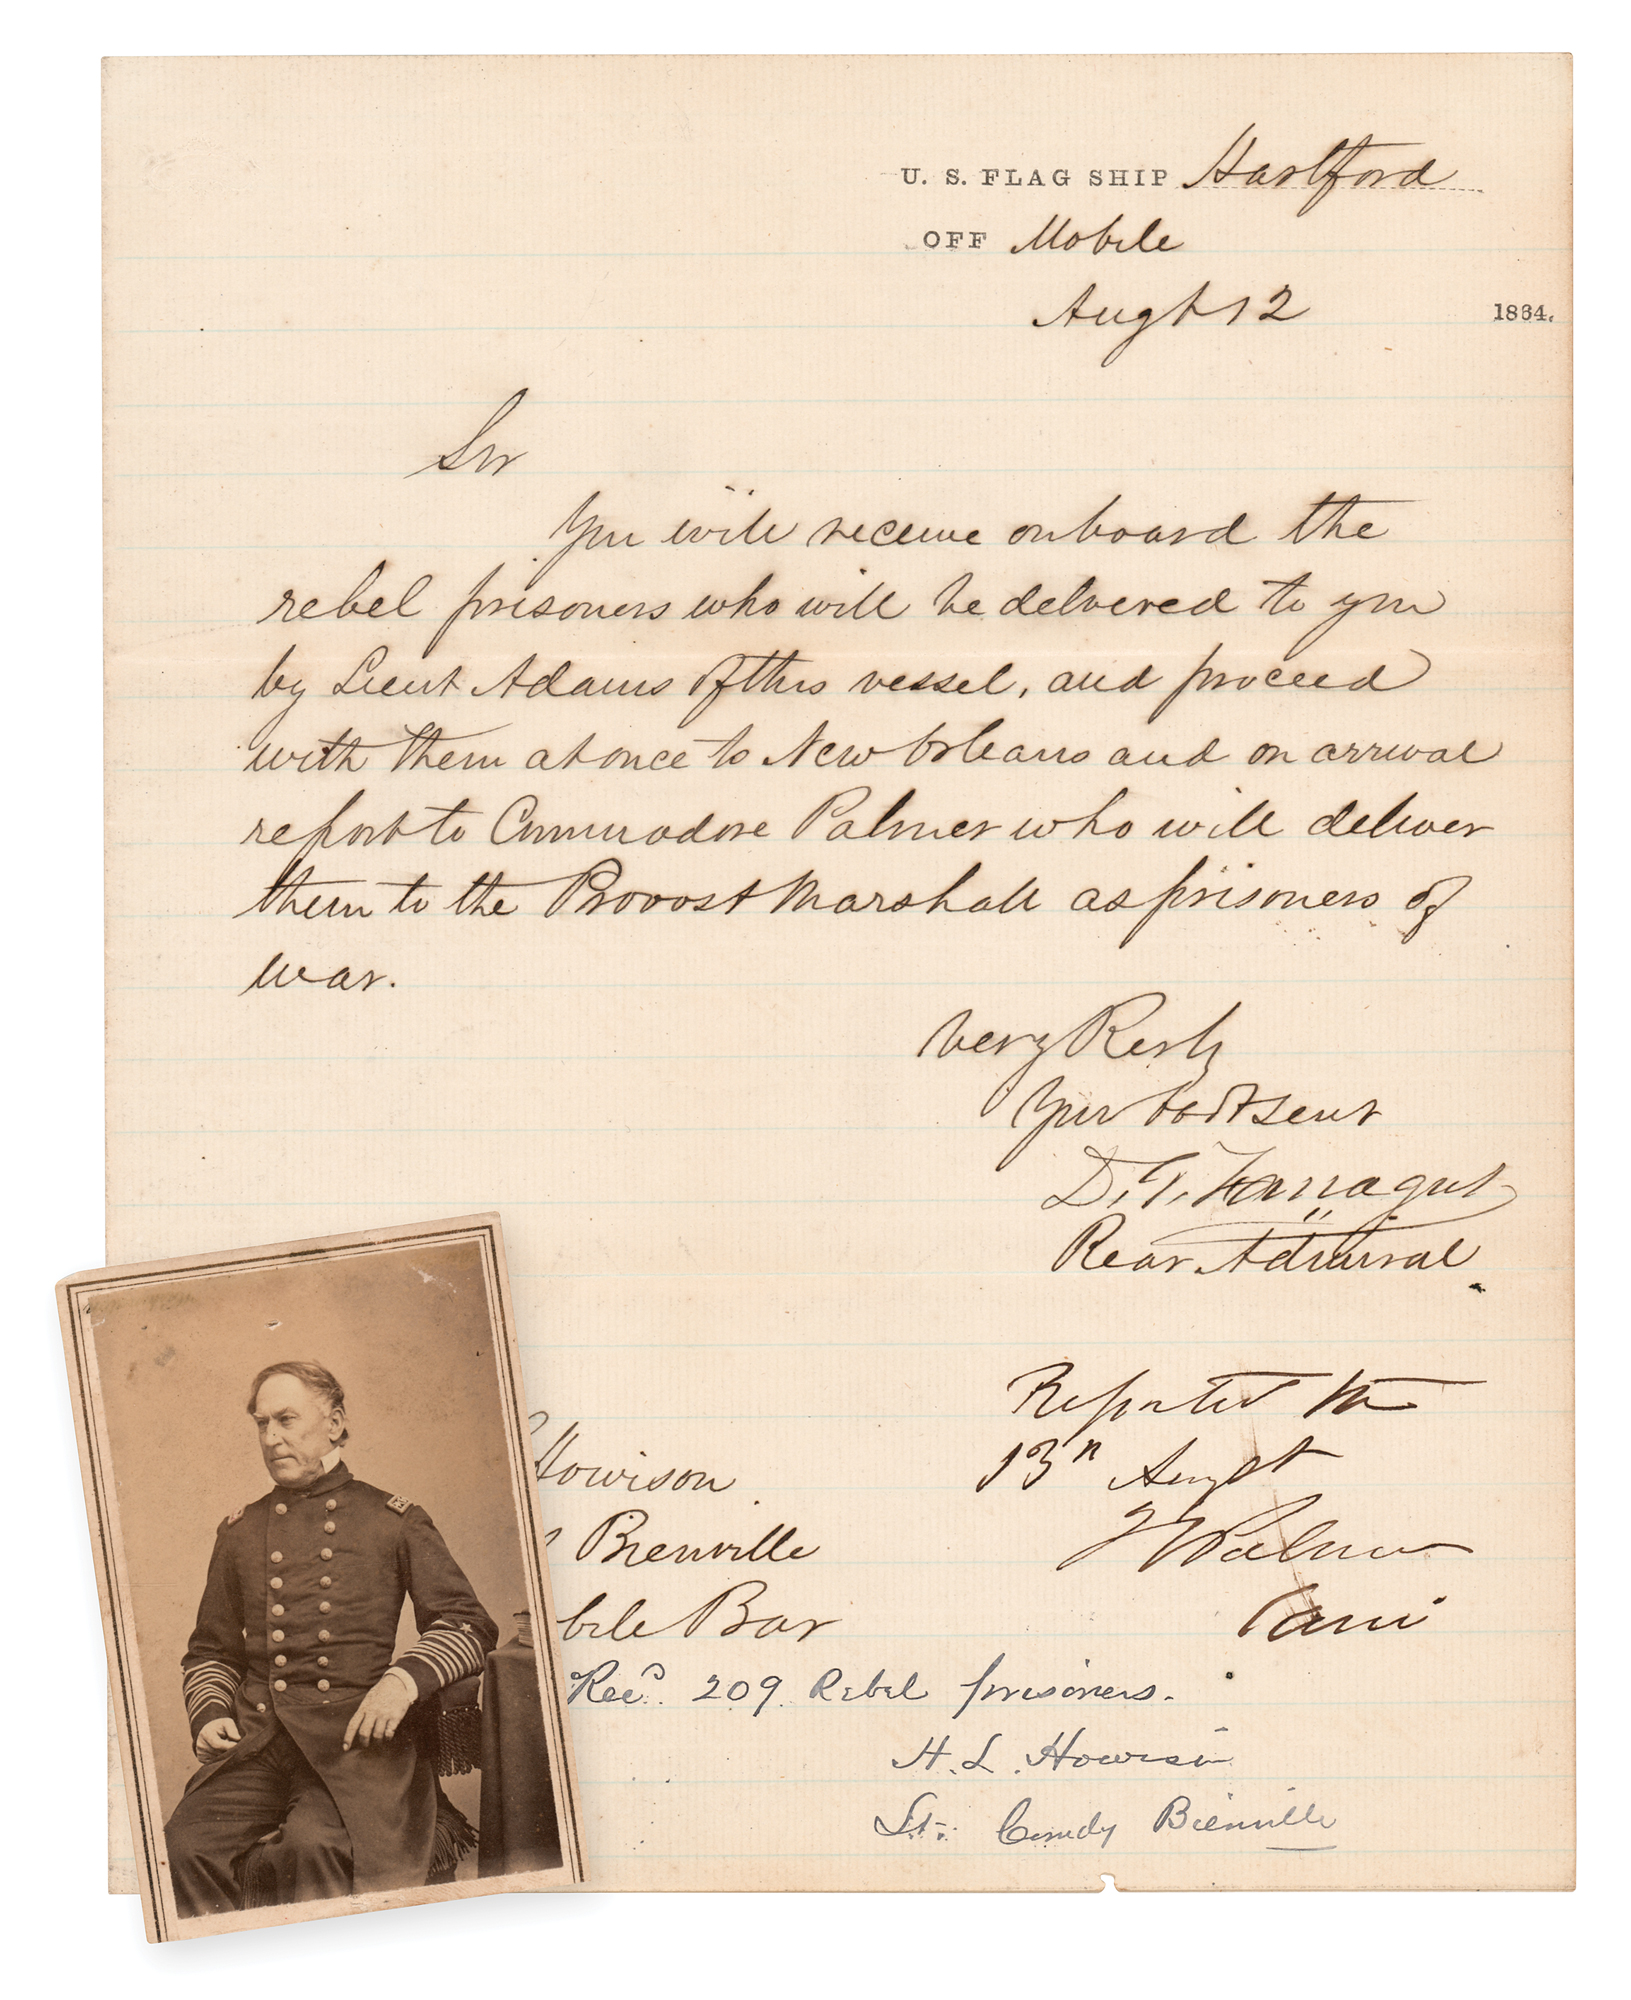 U. S. FLAG SHIP Hartford
OFF Mobile
Augt 12 1864.
Sir
You will receive onboard the
rebel prisoners who will be delivered to you
by Lieut Adams of this vessel, and proceed
with them at once to New Orleans and on arrival
report to Commodore Palmer who will deliver
them to the Provost Marshall as prisoners of
war.
Very Resly
Your Obdt Servt
D. G. Farragut
Rear Admiral
Reported
13th Augst
Howison
J S Palmer
Bienville
bile Bar
Recd. 209 Rebel prisoners.
H. L. Howison
Lt. Comdg Bienville